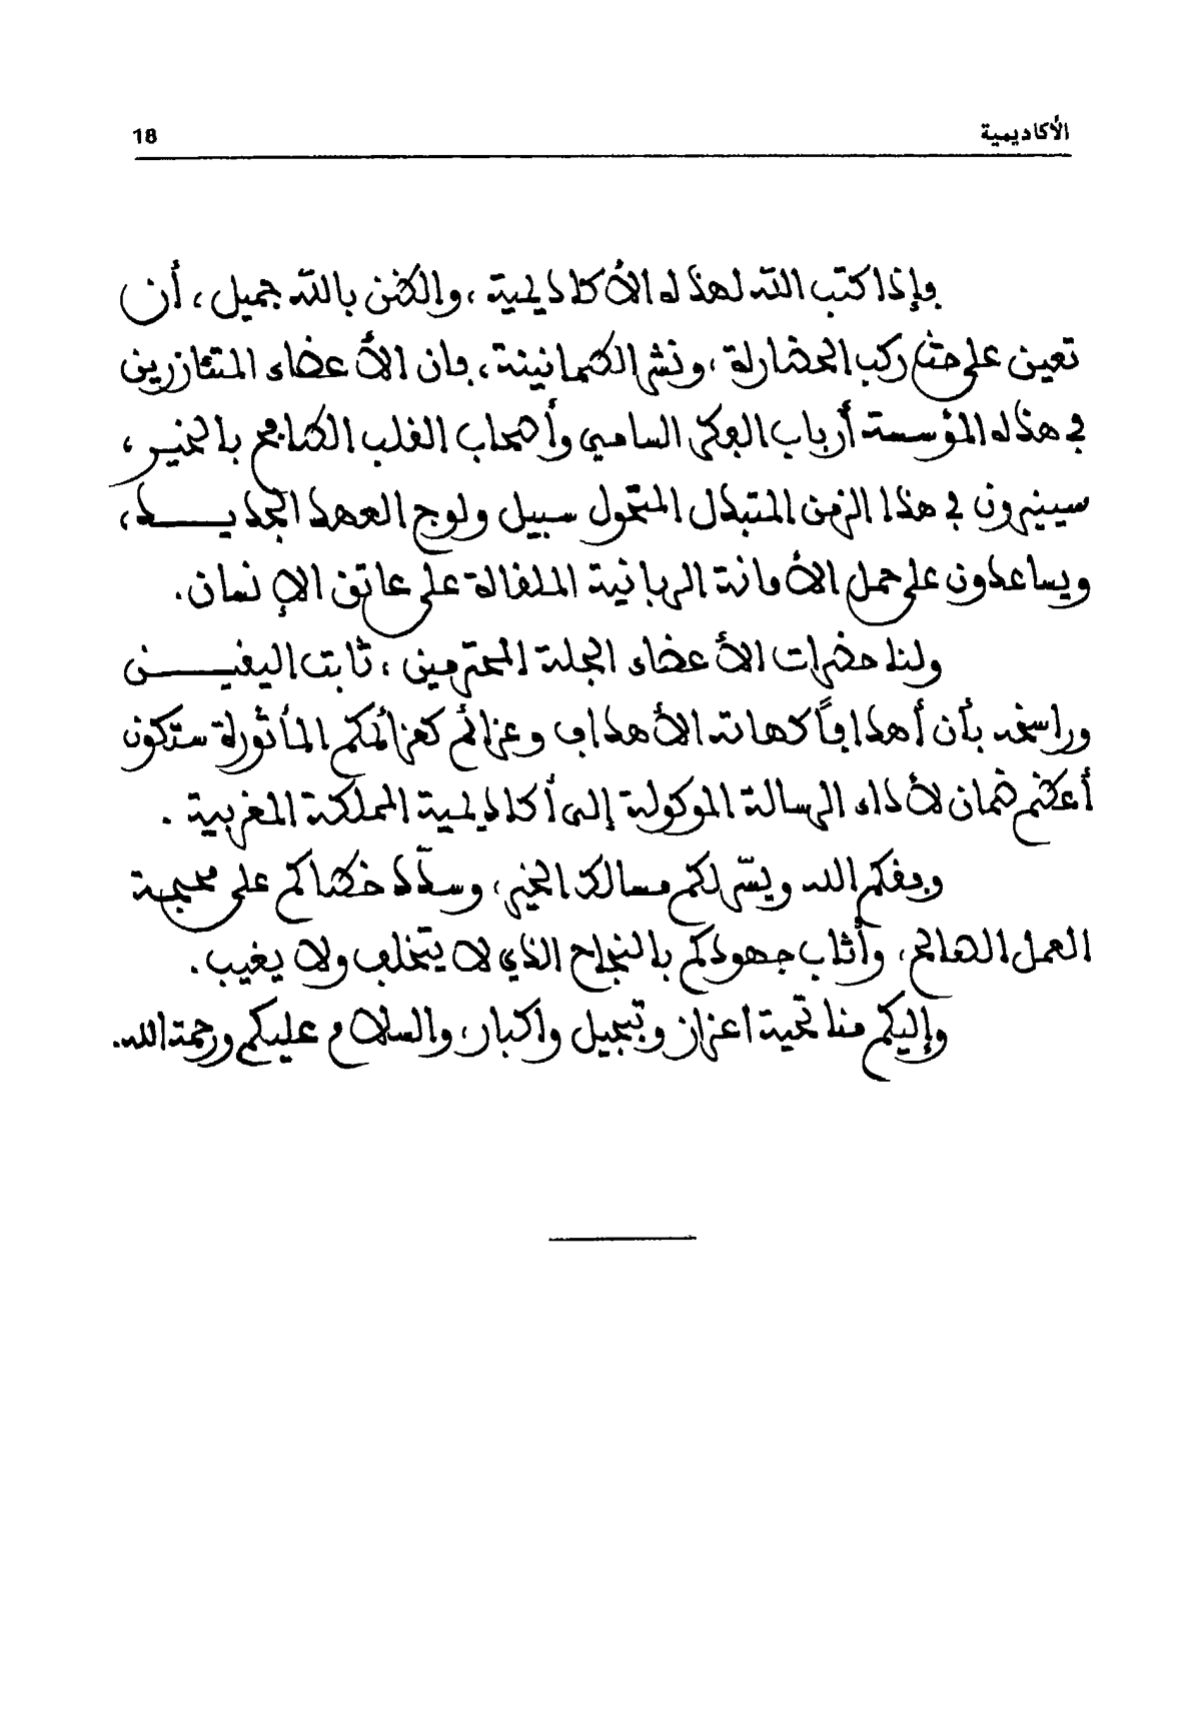 الأكاديمية
18
فإذا كتب الله لهذه الأكاديمية ، والظن بالله جميل ، أن
تعين على حث ركب الحضارة ، ونشر الطمأنينة ، فان الأعضاء المتئازرين
في هذه المؤسسة أرباب الفكر السامي وأصحاب القلب الطافح بالخير ،
سينيرون في هذا الزمن المتبدل المتحول سبيل ولوج العهد الجديـــد ،
ويساعدون على حمل الأمانة الربانية الملقاة على عاتق الإنسان .
ولنا حضرات الأعضاء الجلة المحترمين ، ثابت اليقيـــن
وراسخه بأن أهدافاً كهاته الأهداف وعزائم كعزائمكم المأثورة ستكون
أعظم ضمان لأداء الرسالة الموكولة إلى أكاديمية المملكة المغربية .
وفقكم الله ويسّر لكم مسالك الخير ، وسدّد خطاكم على محجة
العمل الصالح ، وأثاب جهودكم بالنجاح الذي لا يتخلف ولا يغيب .
وإليكم منا تحية اعزاز وتبجيل واكبار ، والسلام عليكم ورحمة الله .